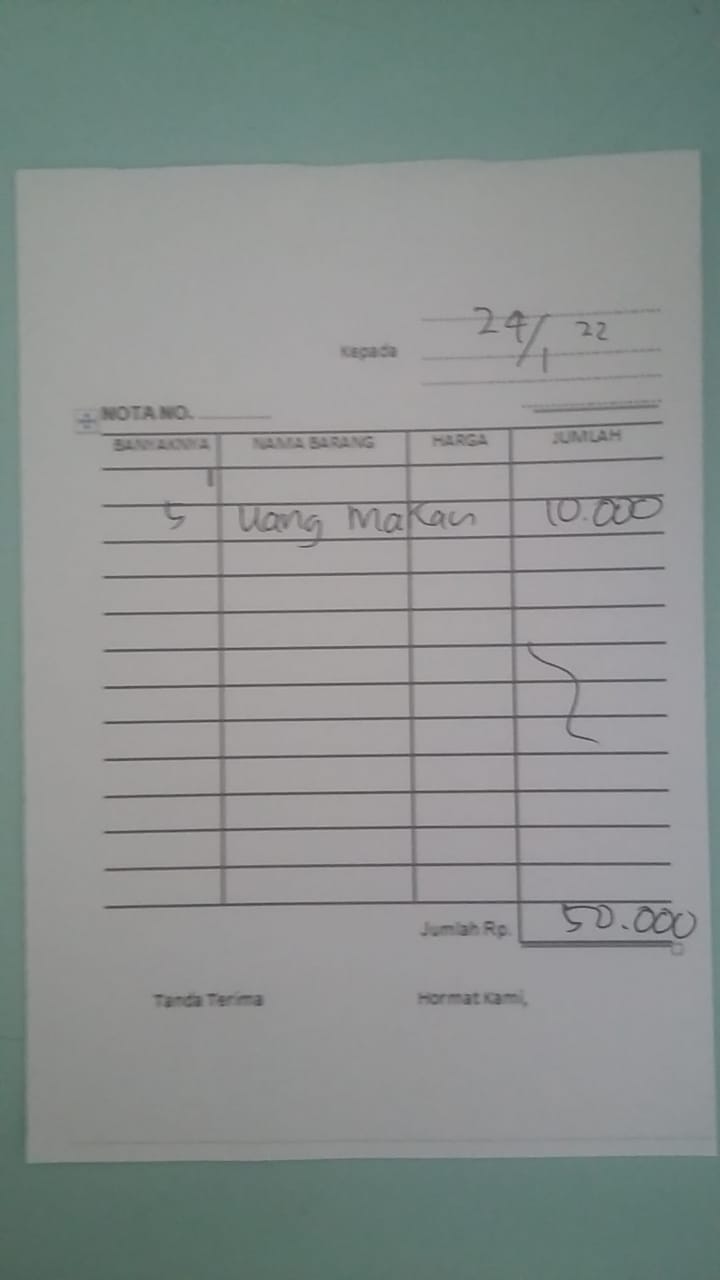 24/1 22
Kepada
NOTA NO.
BANYAKNYA NAMA BARANG HARGA JUMLAH
5 Uang Makan 10.000
Jumlah Rp. 50.000
Tanda Terima Hormat Kami,